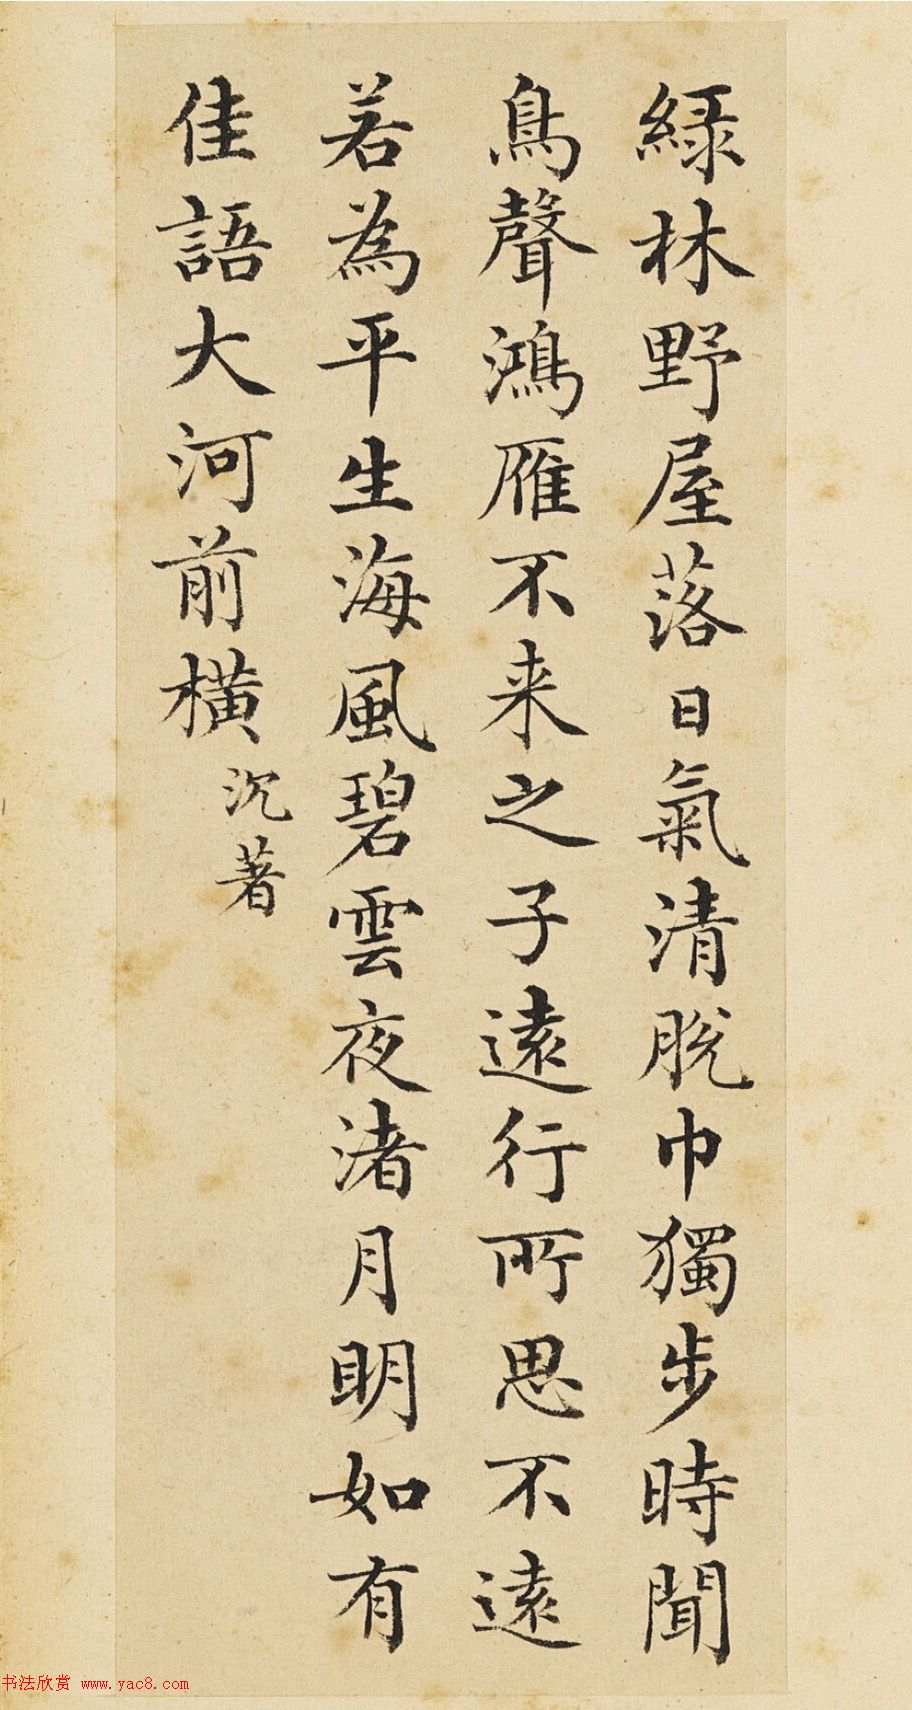 綠林野屋落日氣清脫巾獨步時聞
鳥聲鴻雁不来之子遠行所思不遠
若為平生海風碧雲夜渚月明如有
佳語大河前橫
沉著
书法欣赏 www.yac8.com